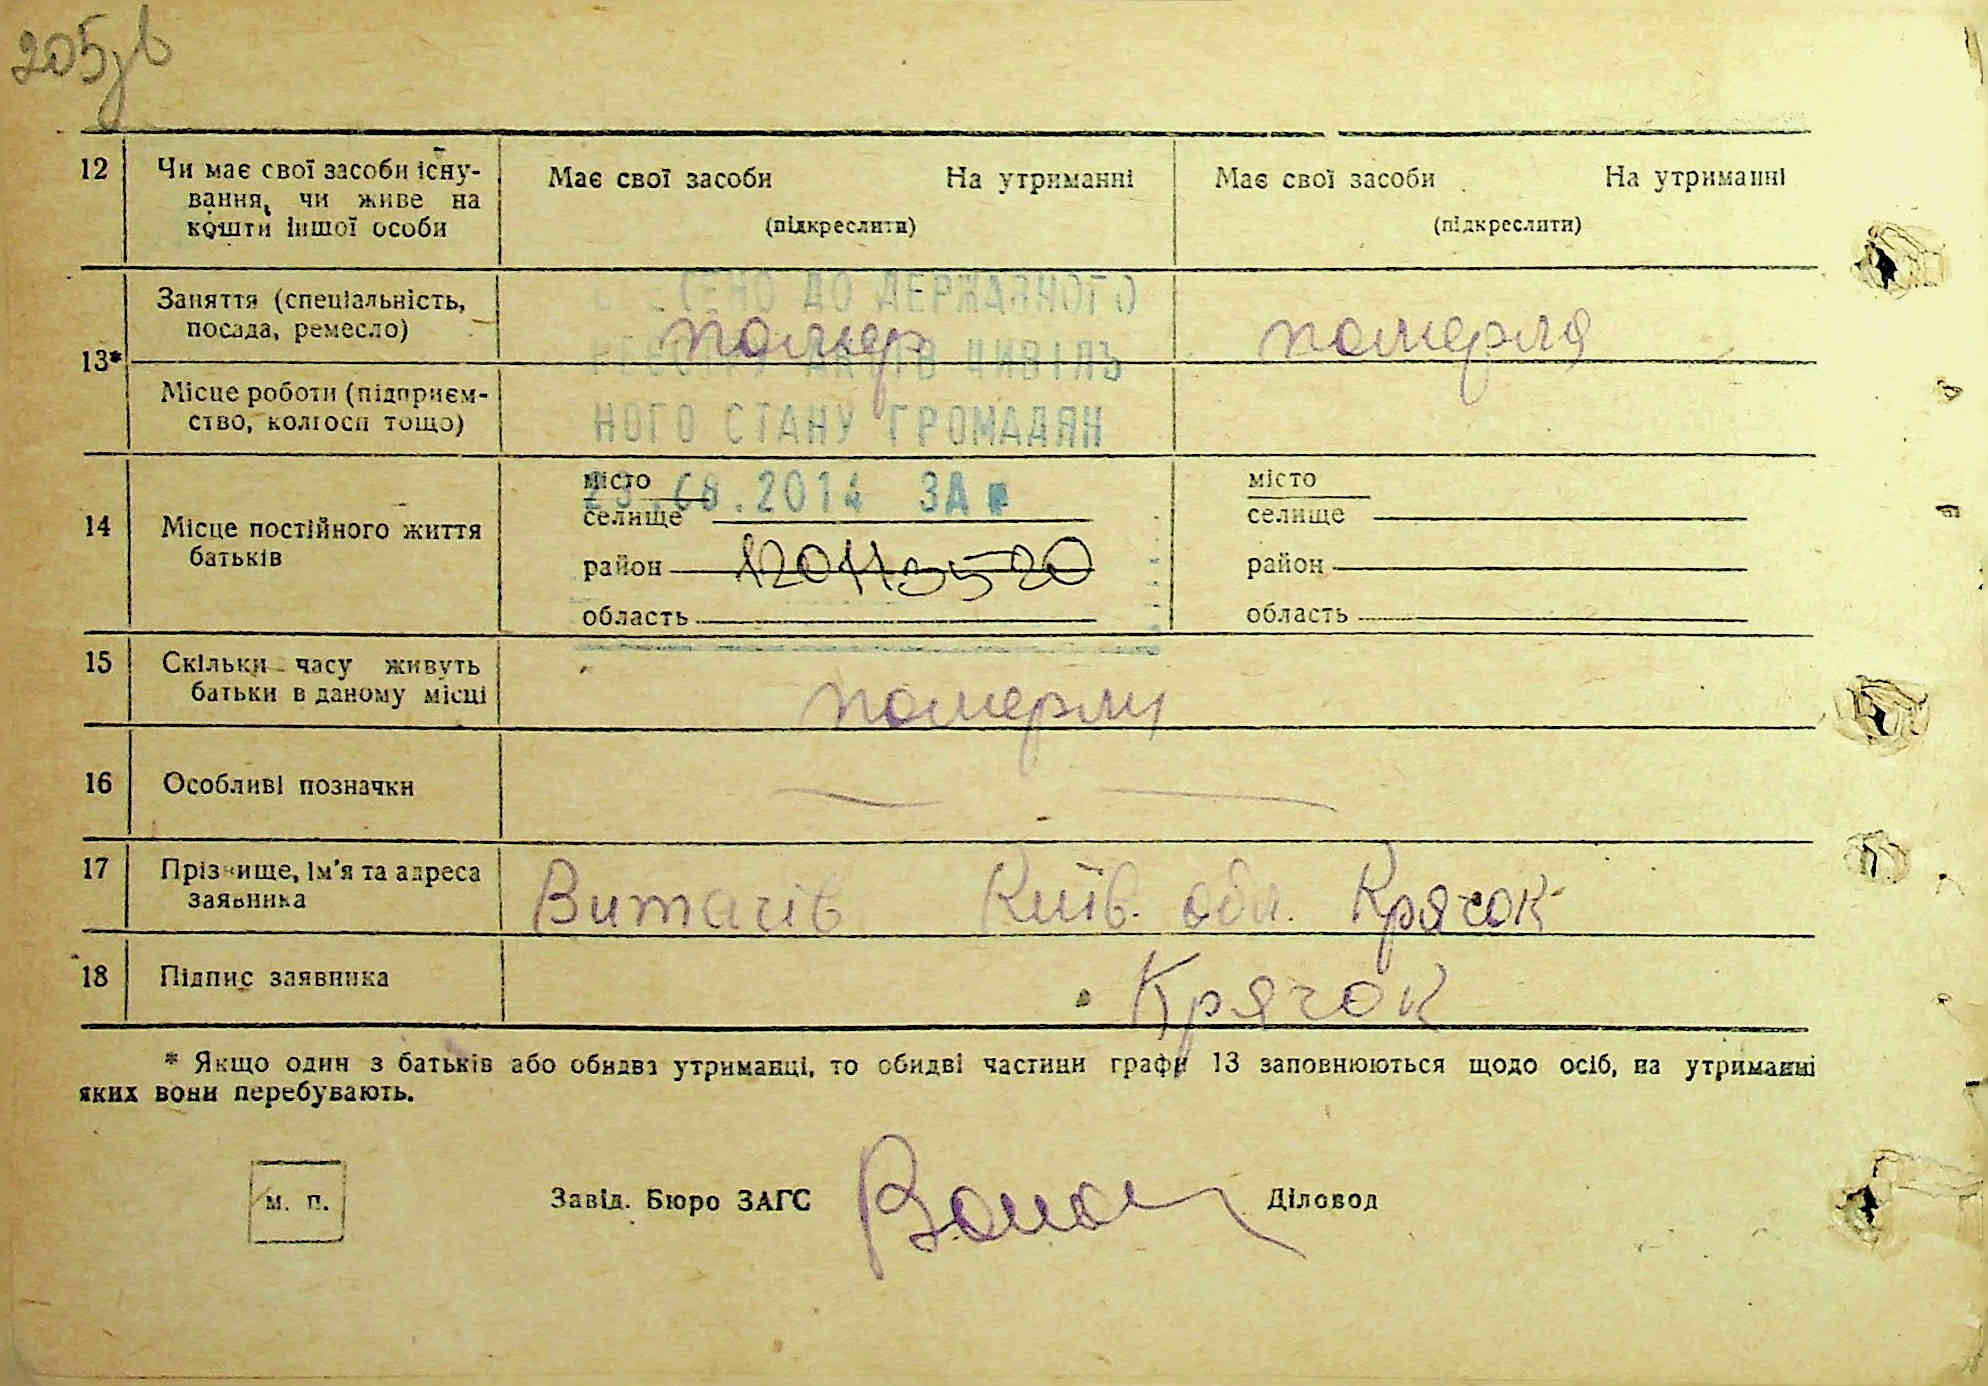 205зв
12 Чи має свої засоби існу-
вання, чи живе на
кошти іншої особи
Має свої засоби На утриманні
(підкреслити)
Має свої засоби На утриманні
(підкреслити)
13*
Заняття (спеціальність,
посада, ремесло)
помер
померла
Місце роботи (підприєм-
ство, колгосп тощо)
ВНЕСЕНО ДО ДЕРЖАВНОГО
РЕЄСТРУ АКТІВ ЦИВІЛЬ
НОГО СТАНУ ГРОМАДЯН
.08.2014 ЗА №
14 Місце постійного життя
батьків
місто
селище
район 120113520
область
місто
селище
район
область
15 Скільки часу живуть
батьки в даному місці
померли
16 Особливі позначки
17 Прізвище, ім'я та адреса
заявника
Витачів Київ. обл. Крячок
18 Підпис заявника
Крячок
* Якщо один з батьків або обидва утриманці, то обидві частини графи 13 заповнюються щодо осіб, на утриманні
яких вони перебувають.
м. п.
Завід. Бюро ЗАГС
Діловод